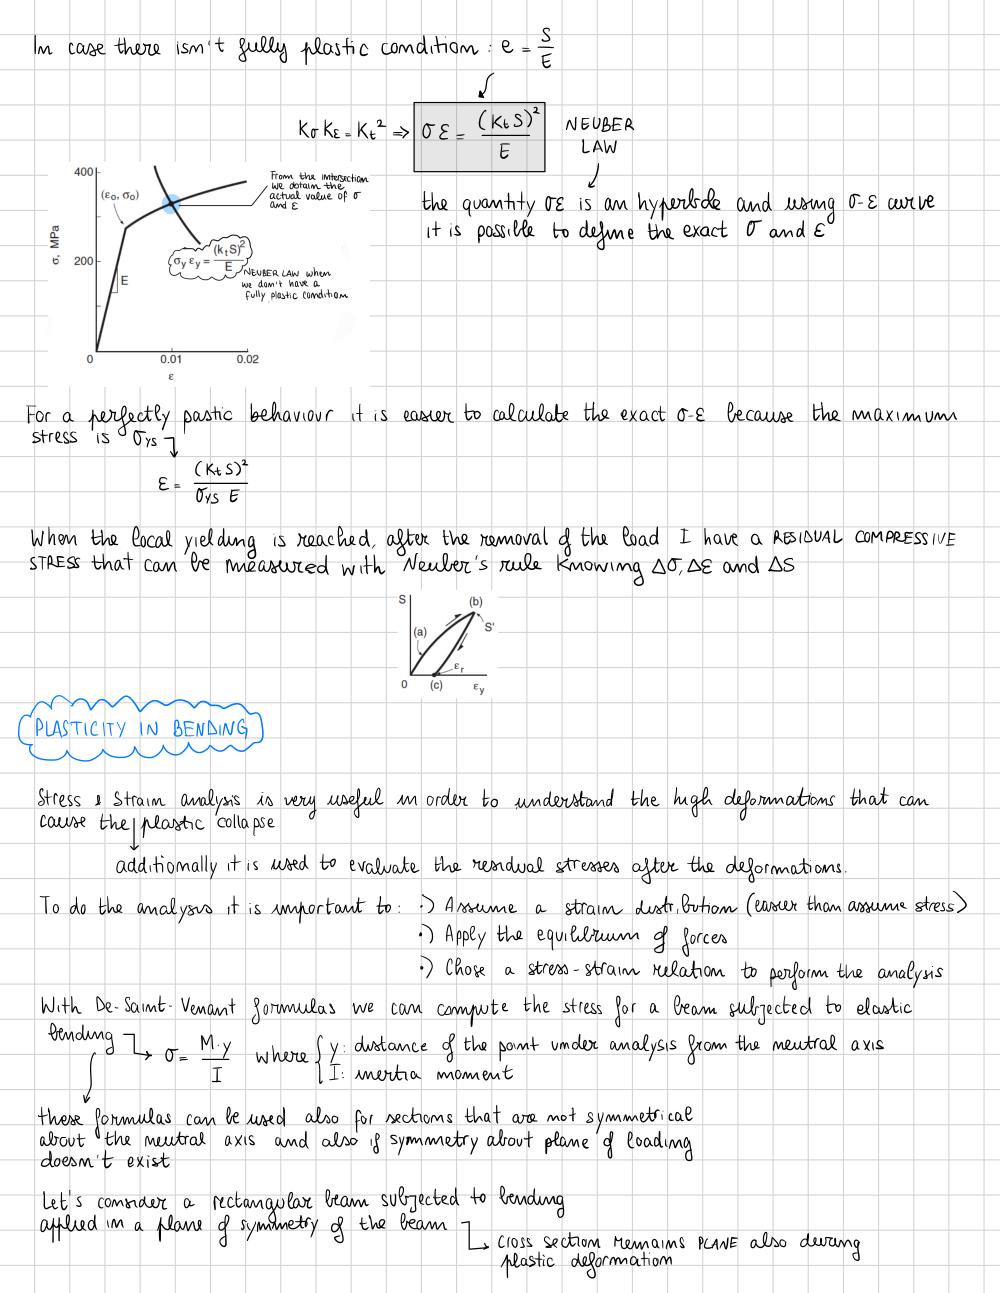 In case there isn't fully plastic condition : e = S/E
Kσ Kε = Kt² ⇒ σ ε = (Kt S)²/E NEUBER LAW
the quantity σε is an hyperbole and using σ-ε curve
it is possible to define the exact σ and ε
400
200
0
0.01
0.02
σ, MPa
ε
(ε₀, σ₀)
E
From the intersection
we obtain the
actual value of σ
and ε
σy εy = (kt S)²/E
NEUBER LAW when
we don't have a
fully plastic condition
For a perfectly pastic behaviour it is easier to calculate the exact σ-ε because the maximum
stress is σys
ε = (Kt S)²/σys E
When the local yielding is reached, after the removal of the load I have a RESIDUAL COMPRESSIVE
STRESS that can be measured with Neuber's rule Knowing Δσ, Δε and ΔS
S
(b)
(a)
S'
εr
0
(c)
εy
PLASTICITY IN BENDING
Stress & Strain analysis is very useful in order to understand the high deformations that can
cause the plastic collapse
additionally it is used to evaluate the residual stresses after the deformations.
To do the analysis it is important to : ·) Assume a strain distribution (easier than assume stress)
·) Apply the equilibrium of forces
·) Chose a stress-strain relation to perform the analysis
With De-Saint-Venant formulas we can compute the stress for a beam subjected to elastic
bending → σ = M·y/I where { y: distance of the point under analysis from the neutral axis
I: inertia moment
these formulas can be used also for sections that are not symmetrical
about the neutral axis and also if symmetry about plane of loading
doesn't exist
Let's consider a rectangular beam subjected to bending
applied in a plane of symmetry of the beam
cross section remains PLANE also during
plastic deformation